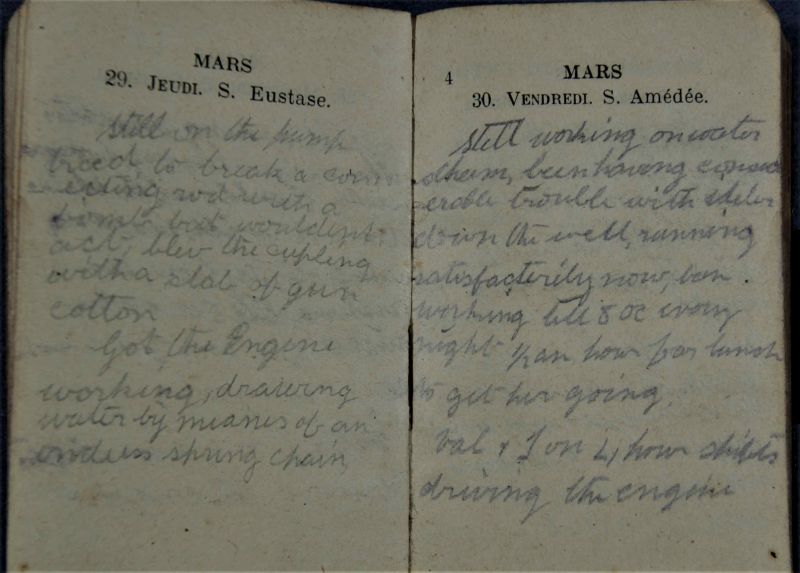 MARS
29. JEUDI. S. Eustase.
Still on the pump
tried to break a conn
ecting rod with a
bomb but wouldent
act, blew the cupling
with a slab of gun
cotton
Got the Engine
working, drawing
water by means of an
endless spring chain
4
MARS
30. VENDREDI. S. Amédée.
Still working on water
dham, been having consid
erable trouble with
down the well, running
satisfacterily now, ben
working till 8 oc every
night ½ an hour for lunch
to get her going.
Val & I on 4 hour shifts
driving the engine